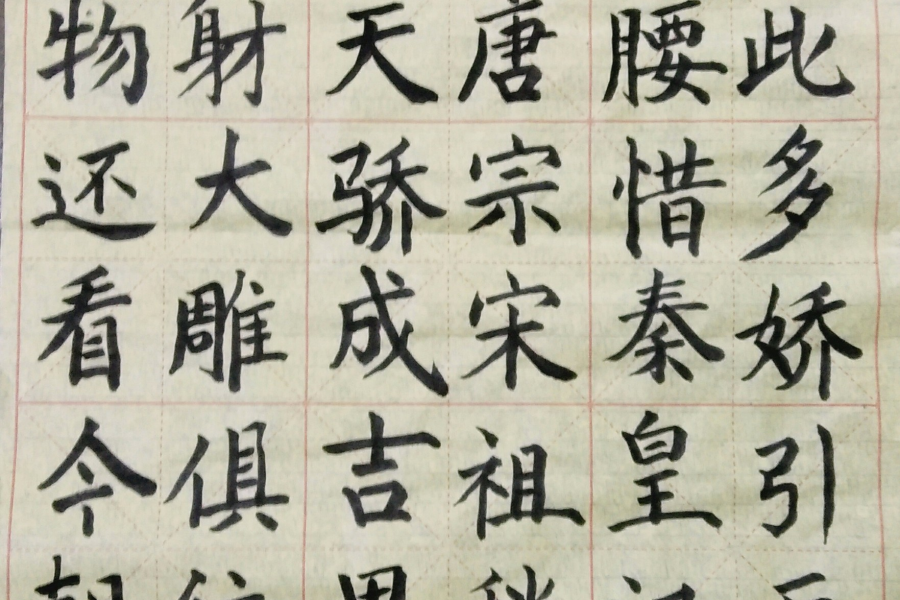 此多娇引
腰惜秦皇
唐宗宋祖
天骄成吉
射大雕俱
物还看今